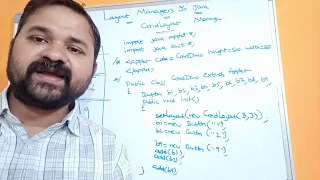 Layout Managers In Java
GridLayout Manager
import java.applet.*;
import java.awt.*;
/* <applet code=GridDemo height=500 width=500>
</applet>
*/ Public class GridDemo extends Applet
{ Button b1, b2, b3, b4, b5, b6, b7, b8, b9;
Public void init()
{
setLayout(new GridLayout(3,3));
b1=new Button("1");
b2=new Button("2");
b9=new Button("9");
add(b1);
add(b2);
add(b9);
}